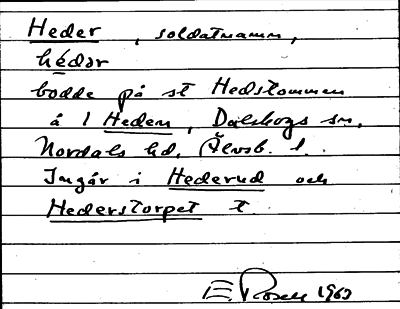 Heder, soldatnamn,
hédər
bodde på st Hedstommen
å 1 Hedem, Dalskogs sn,
Nordals hd, Älvsb. l.
Ingår i Hederud och
Hederstorpet t.
E Rosell 1963